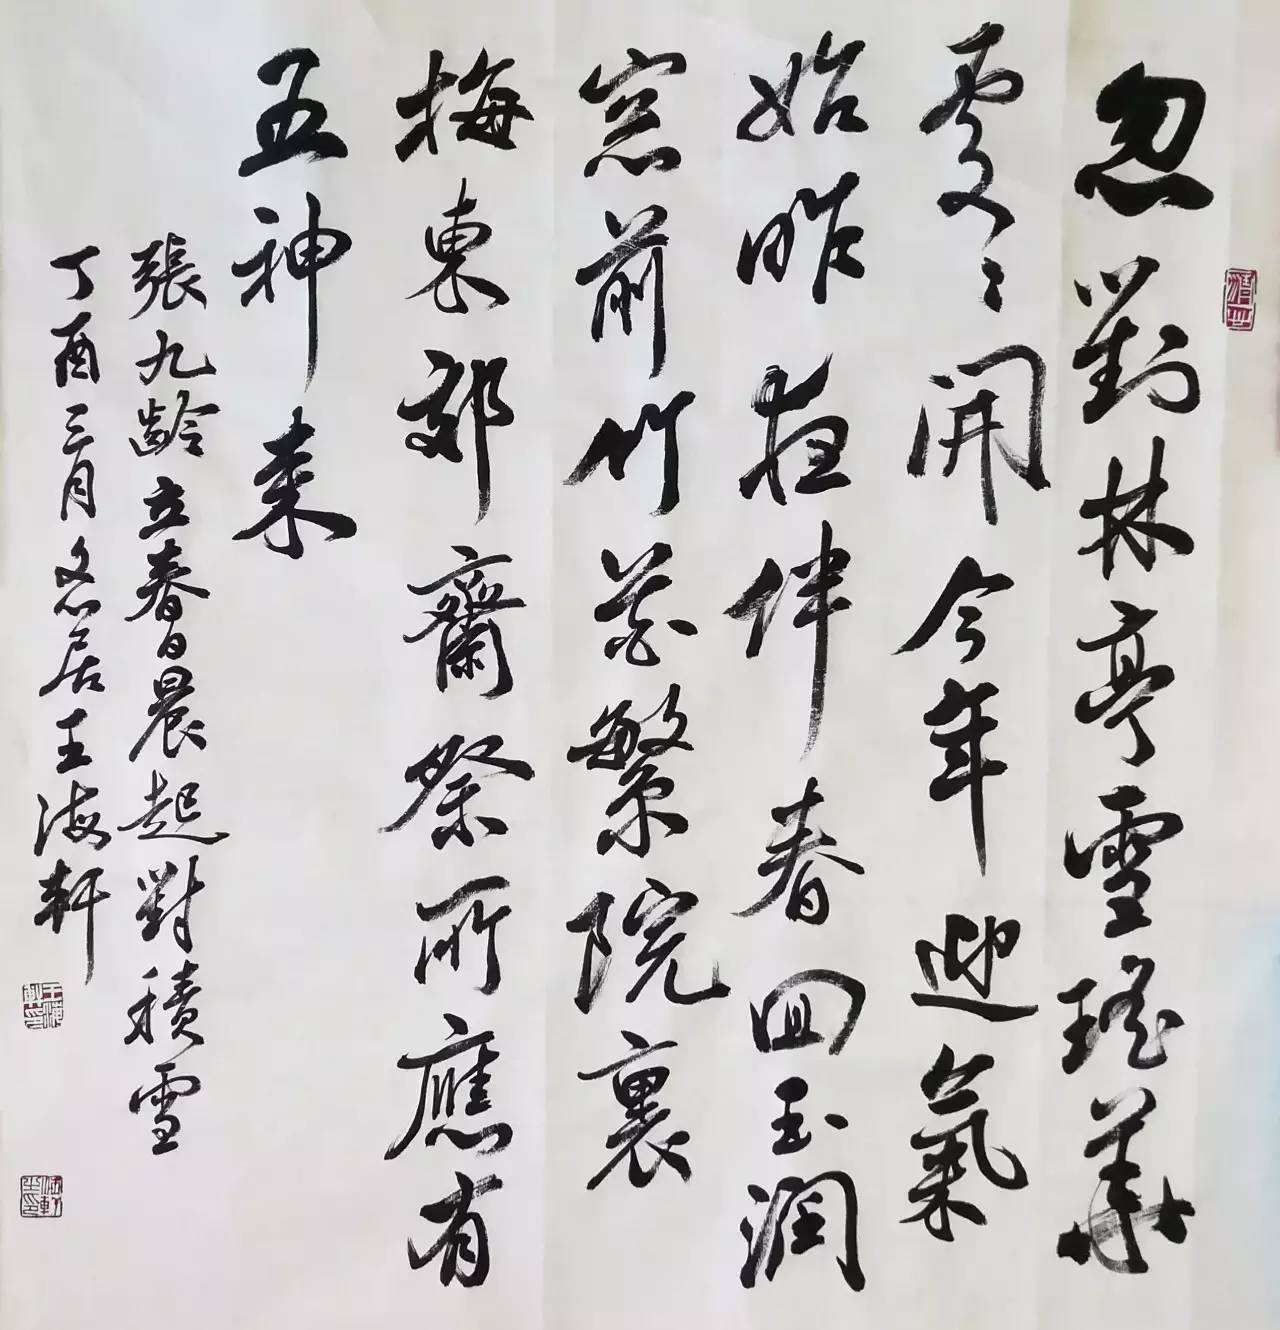 忽對林亭雪瑤華
處々開今年迎氣
始昨夜伴春回玉潤
窓前竹花繁院裏
梅東郊齋祭所應有
五神来
張九齡立春日晨起對積雪
丁酉三月文居王海軒